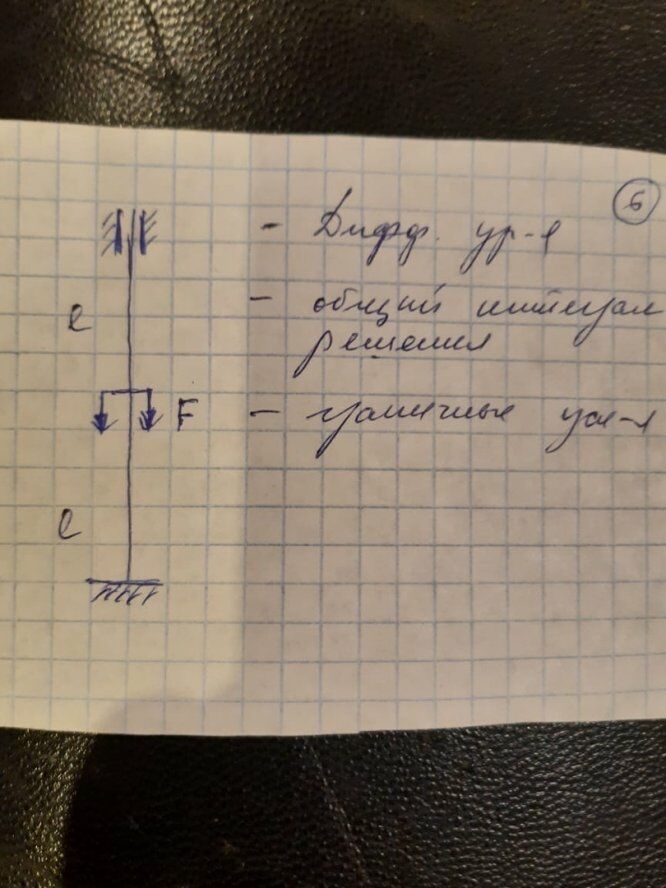 6
- Дифф. ур-я
- общий интеграл
решения
- граничные усл-я
l
F
l